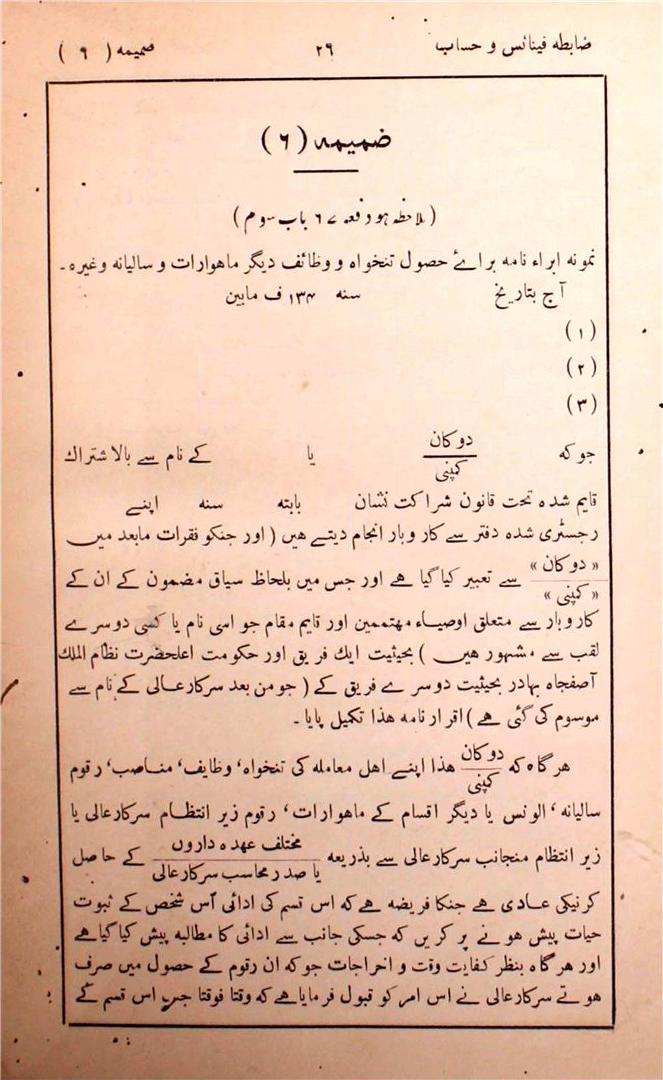 ضابطہ فینانس و حساب ۲۹ ضمیمہ ( ۹ )
ضمیمہ ( ٦ )
( ملاحظہ ہو دفعہ ٦٧ باب سوم )
نمونہ ابراء نامہ برائے حصول تنخواہ و وظائف دیگر ماہوارات و سالیانہ وغیرہ ۔
آج بتاریخ سنہ ۱۳۴ ف مابین
( ۱ )
( ۲ )
( ۳ )
جو کہ دوکان / کمپنی یا کے نام سے بالاشتراك
قایم شدہ تحت قانون شراکت نشان بابتہ سنہ اپنے
رجسٹری شدہ دفتر سے کار وبار انجام دیتے ہیں ( اور جنکو فقرات مابعد میں
« دوکان » / « کمپنی » سے تعبیر کیا گیا ہے اور جس میں بلحاظ سیاق مضمون کے ان کے
کاروبار سے متعلق اوصیاء مہتممین اور قایم مقام جو اسی نام یا کسی دوسرے
لقب سے مشہور ہیں ) بحیثیت ایك فریق اور حکومت اعلحضرت نظام الملك
آصفجاہ بہادر بحیثیت دوسرے فریق کے ( جو من بعد سرکارعالی کے نام سے
موسوم کی گئی ہے ) اقرار نامہ ہذا تکمیل پایا ۔
ہر گاہ کہ دوکان / کمپنی ہذا اپنے اہل معاملہ کی تنخواہ، وظایف، مناصب، رقوم
سالیانہ، الونس یا دیگر اقسام کے ماہوارات، رقوم زیر انتظام سرکارعالی یا
زیر انتظام منجانب سرکارعالی سے بذریعہ مختلف عہدہ داروں / یا صدر محاسب سرکارعالی کے حاصل
کرنیکی عادی ہے جنکا فریضہ ہے کہ اس قسم کی ادائی اس شخص کے ثبوت
حیات پیش ہونے پر کریں کہ جسکی جانب سے ادائی کا مطالبہ پیش کیا گیا ہے
اور ہر گاہ بنظر کفایت وقت و اخراجات جو کہ ان رقوم کے حصول میں صرف
ہوتے سرکارعالی نے اس امر کو قبول فرمایا ہے کہ وقتا فوقتا جب اس قسم کے